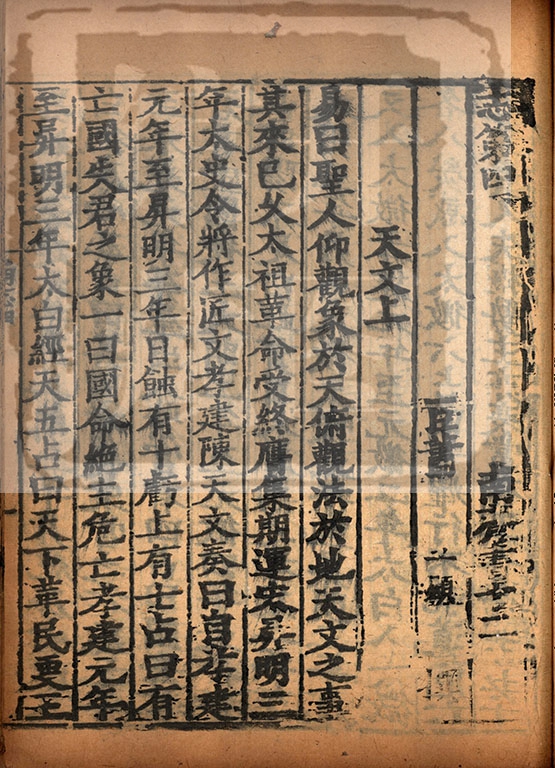 志第四 南齊書十二
天文上
易曰聖人仰觀象於天俯觀法於地天文之事
其來已久太祖革命受終膺集期運宋昇明三
年太史令將作匠文孝建陳天文奏曰自孝建
元年至昇明三年日蝕有十虧上有七占曰有
亡國失君之象一曰國命絶主危亡孝建元年
至昇明三年太白經天五占曰天下革民更王